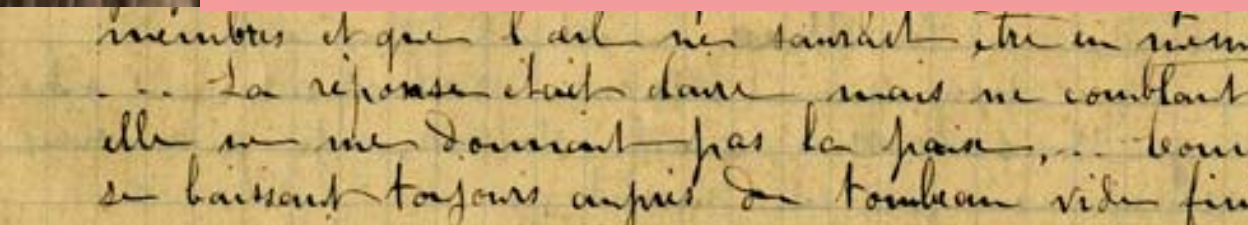 membres et que l'œil ne saurait être en mêm
... La réponse était claire, mais ne comblait
elle ne me donnait pas la paix,... Com
se baissant toujours auprès du tombeau vide fin